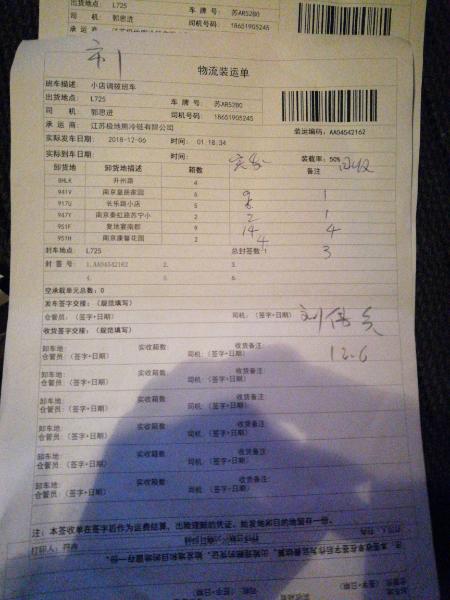 出货地点： L725 车 牌 号： 苏AR5280
司 机： 郭思进 司机号码： 18651905245
物流装运单
班车描述： 小店调拨班车
出货地点： L725 车 牌 号： 苏AR5280
司 机： 郭思进 司机号码： 18651905245
承 运 商： 江苏极地熊冷链有限公司 装运编码：AA04542162
实际发车日期： 2018-12-06 时间： 01 18.34
实际到车日期： 时间： 装载率：50%
卸货地 卸货地描述 箱数 备注 回收
8HLK 升州路 4
941V 南京皇居家园 6 9 1
917U 长乐路小店 5
947V 南京秦虹路苏宁小 2 2 1
951F 复地宴南都 9 14 4
951H 南京康馨花园 2 4 3
封车地点： L725 总封签数：1
封 签 号： 1.AA04542162 2. 3.
4. 5. 6.
空承载单元总数：0
发车签字交接：（规范填写）
仓管员：（签字+日期） 司机：（签字+日期） 刘
收货签字交接：（规范填写）
12.6
卸车地： 实收箱数 收货备注：
仓管员：（签字+日期） 司机：（签字+日期）
卸车地： 实收箱数 收货备注：
仓管员：（签字+日期） 司机：（签字+日期）
卸车地： 实收箱数 收货备注：
仓管员：（签字+日期） 司机：（签字+日期）
卸车地： 实收箱数 收货备注：
仓管员：（签字+日期） 司机：（签字+日期）
卸车地： 实收箱数 收货备注：
仓管员：（签字+日期） 司机：（签字+日期）
卸车地： 实收箱数 收货备注：
仓管员：（签字+日期） 司机：（签字+日期）
注：本签收单在签字后作为运费结算，出险理赔的凭证，始发地和目的地留存一份。
打印人：